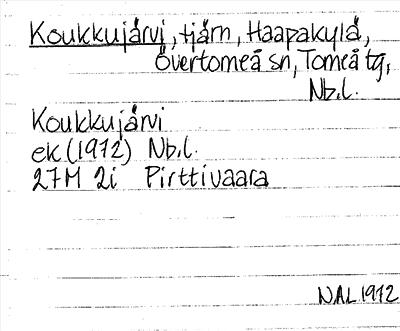 Koukkujärvi, tjärn, Haapakylä,
Övertorneå sn, Torneå tg,
Nb.l.
Koukkujärvi
ek (1972) Nb.l.
27M 2i Pirttivaara
NAL 1972